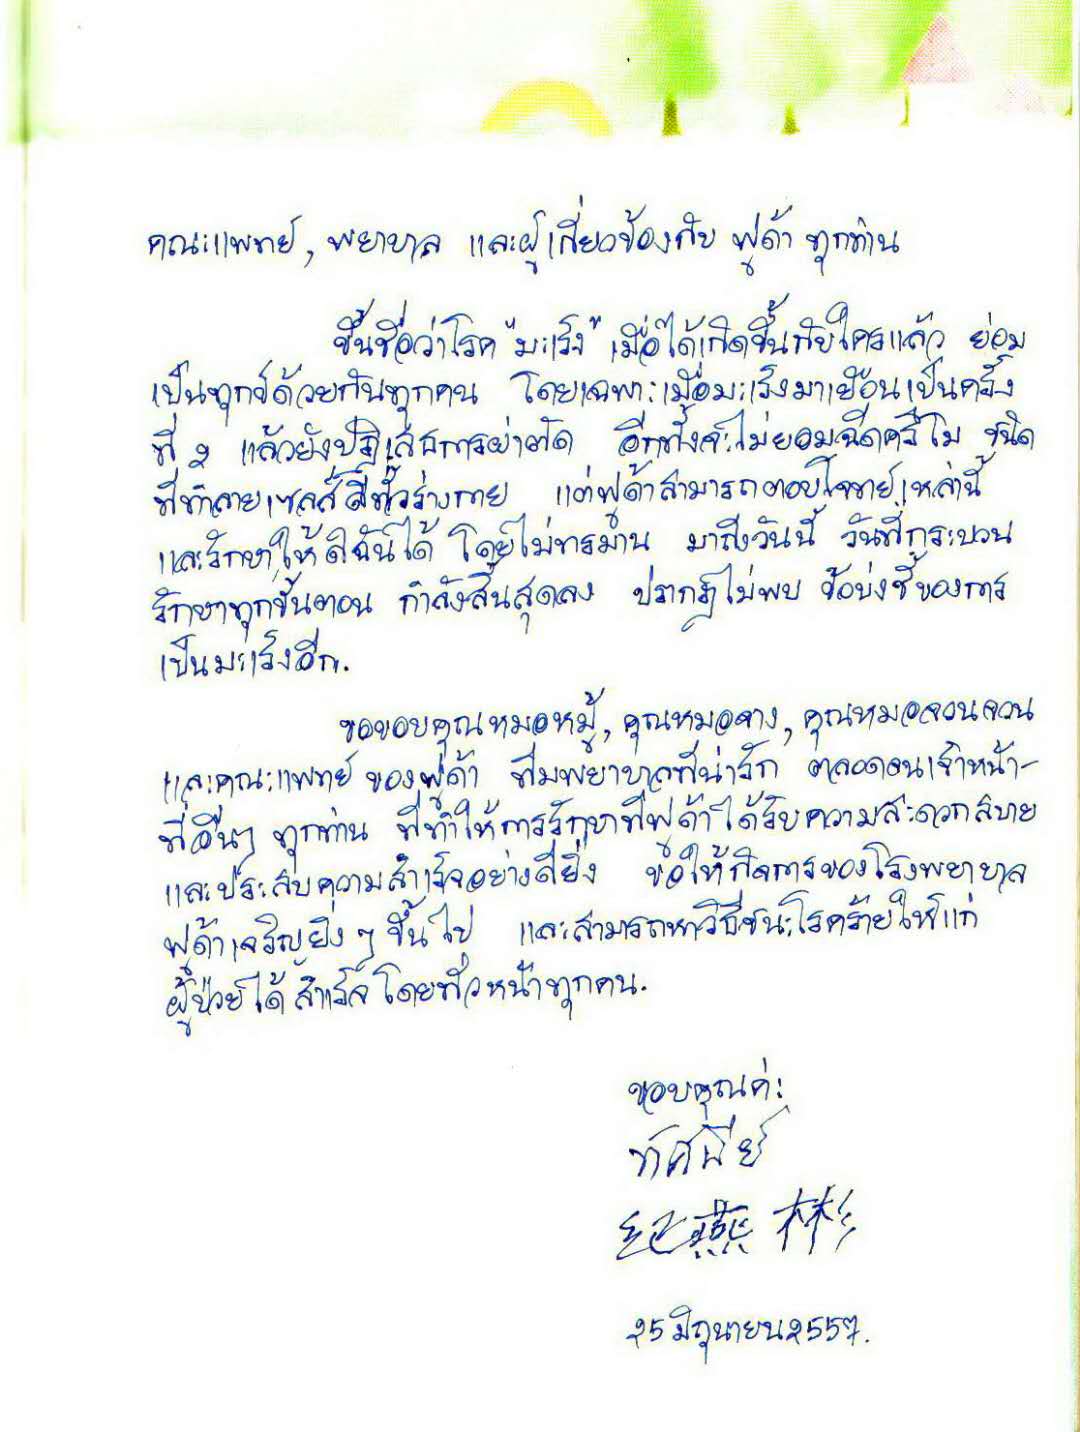 คณะแพทย์, พยาบาล และผู้เกี่ยวข้องกับ ฟูด้า ทุกท่าน
ขึ้นชื่อว่าโรค "มะเร็ง" เมื่อได้เกิดขึ้นกับใครแล้ว ย่อม
เป็นทุกข์ด้วยกันทุกคน โดยเฉพาะเมื่อมะเร็งมาเยือนเป็นครั้ง
ที่ 2 แล้วยังปฏิเสธการผ่าตัด อีกทั้งจะไม่ยอมฉีดคีโม ชนิด
ที่ทำลายเซลล์ดีทั่วร่างกาย แต่ฟูด้าสามารถตอบโจทย์เหล่านี้
และรักษาให้ดิฉันได้ โดยไม่ทรมาน มาถึงวันนี้ วันที่กระบวน
รักษาทุกขั้นตอน กำลังสิ้นสุดลง ปรากฏไม่พบ ข้อบ่งชี้ของการ
เป็นมะเร็งอีก.
ขอขอบคุณหมอหมู้, คุณหมอจาง, คุณหมอจวนจวน
และคณะแพทย์ ของฟูด้า ทีมพยาบาลที่น่ารัก ตลอดจนเจ้าหน้า-
ที่อื่นๆ ทุกท่าน ที่ทำให้การรักษาที่ฟูด้าได้รับความสะดวกสบาย
และประสบความสำเร็จอย่างดียิ่ง ขอให้กิจการของโรงพยาบาล
ฟูด้าเจริญยิ่งๆ ขึ้นไป และสามารถหาวิธีชนะโรคร้ายให้แก่
ผู้ป่วยได้สำเร็จโดยทั่วหน้าทุกคน.
ขอบคุณค่ะ
ทัศนีย์
纪燕彬
25 มิถุนายน 2557.